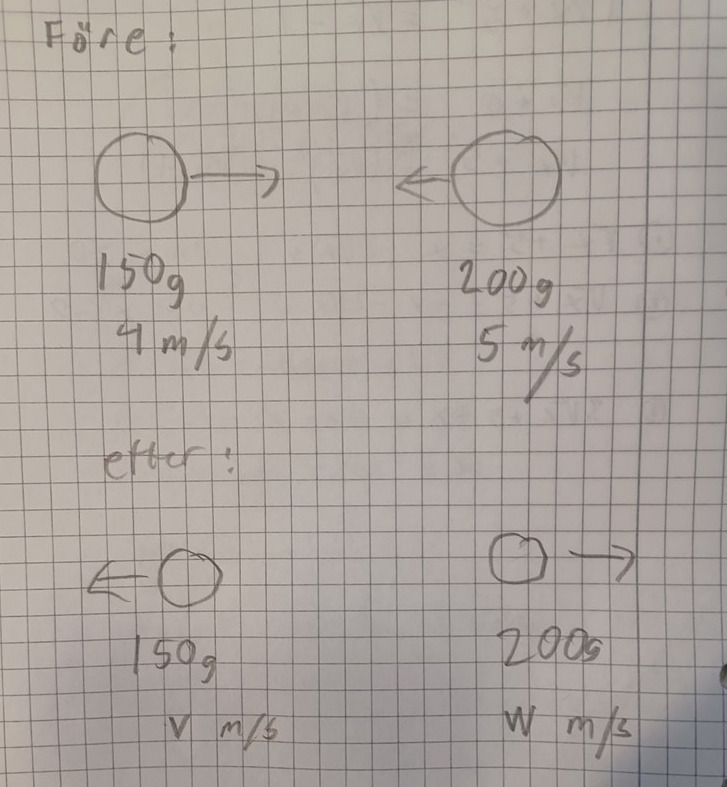 Före:
150g 200g
4 m/s 5 m/s
efter:
150g 200g
v m/s w m/s